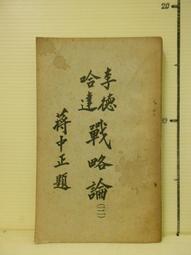 李德
哈達
戰略論(二)
蔣中正題
20